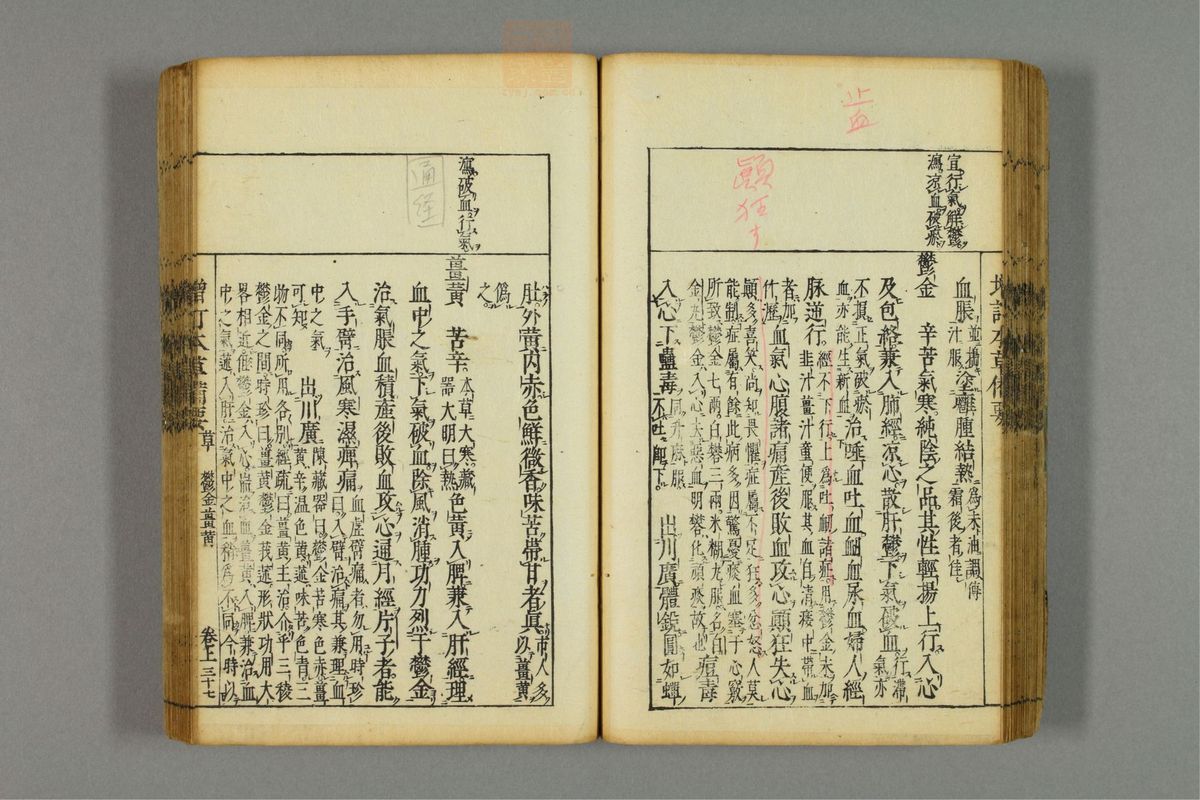 止血
顚狂
宣行氣解鬱
瀉涼血破瘀
增訂本草備要
血脹
並搗汁服
塗癰腫結熱
為末油調傅
霜後者佳
鬱金
辛苦氣寒純陰之品其性輕揚上行入心
及包絡兼入肺經涼心散肝鬱下氣破血
行滯氣亦
不損正氣破瘀
血亦能生新血
治唾血吐血衄血尿血婦人經
脉逆行
經不下行上為吐衄諸症用鬱金末加
韭汁薑汁童便服其血自清痰中帶血
者加
竹瀝
血氣心腹諸痛產後敗血攻心顚狂失心
顚多喜笑尚知畏懼症屬不足狂多忿怒人莫
能制症屬有餘此病多因驚憂痰血塞于心竅
所致鬱金七兩白礬三兩米糊丸服名白
金丸鬱金入心去惡血明礬化頑痰故也
痘毒
入心下蠱毒
同升麻服
不吐即下
出川廣體銳圓如蟬
瀉破血行氣
通経
肚外黃內赤色鮮微香味苦帶甘者真
市人多
以薑黃
偽
之
薑黃
苦辛
本草大寒藏
器大明曰熱
色黃入脾兼入肝經理
血中之氣下氣破血除風消腫功力烈于鬱金
治氣脹血積產後敗血攻心通月經片子者能
入手臂治風寒濕痺痛
血虛臂痛者勿用時珍
曰入臂治痛其兼理血
中之氣
可知
出川廣
陳藏器曰鬱金苦寒色赤薑
黃辛溫色黃莪味苦色青三
物不同所用各別經疏曰薑黃主治介乎三稜
鬱金之間時珍曰薑黃鬱金莪蒁形狀功用大
畧相近但鬱金入心耑治血薑黃入脾兼治血
中之氣蒁入肝治氣中之血稍為不同今時以
增訂本草備要
草
鬱金薑黃
卷上
三十七